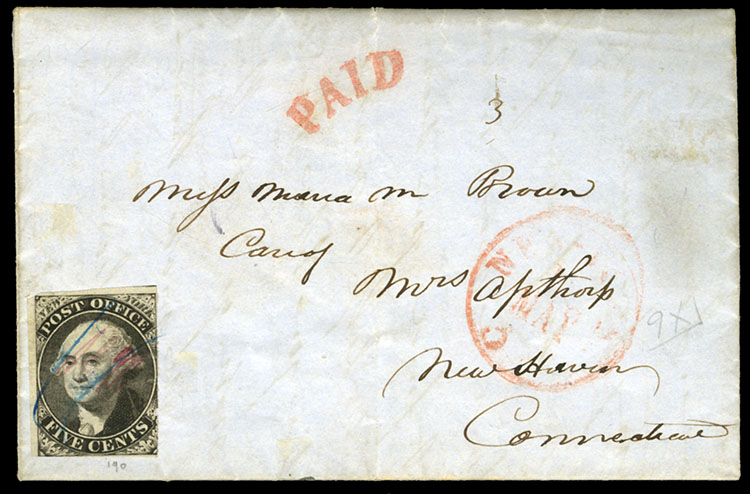 PAID
3
Miss Maria M Brown
Care of
Mrs Apthorp
New Haven
Connecticut
NEW
MAY
9X1
POST OFFICE
FIVE CENTS
190